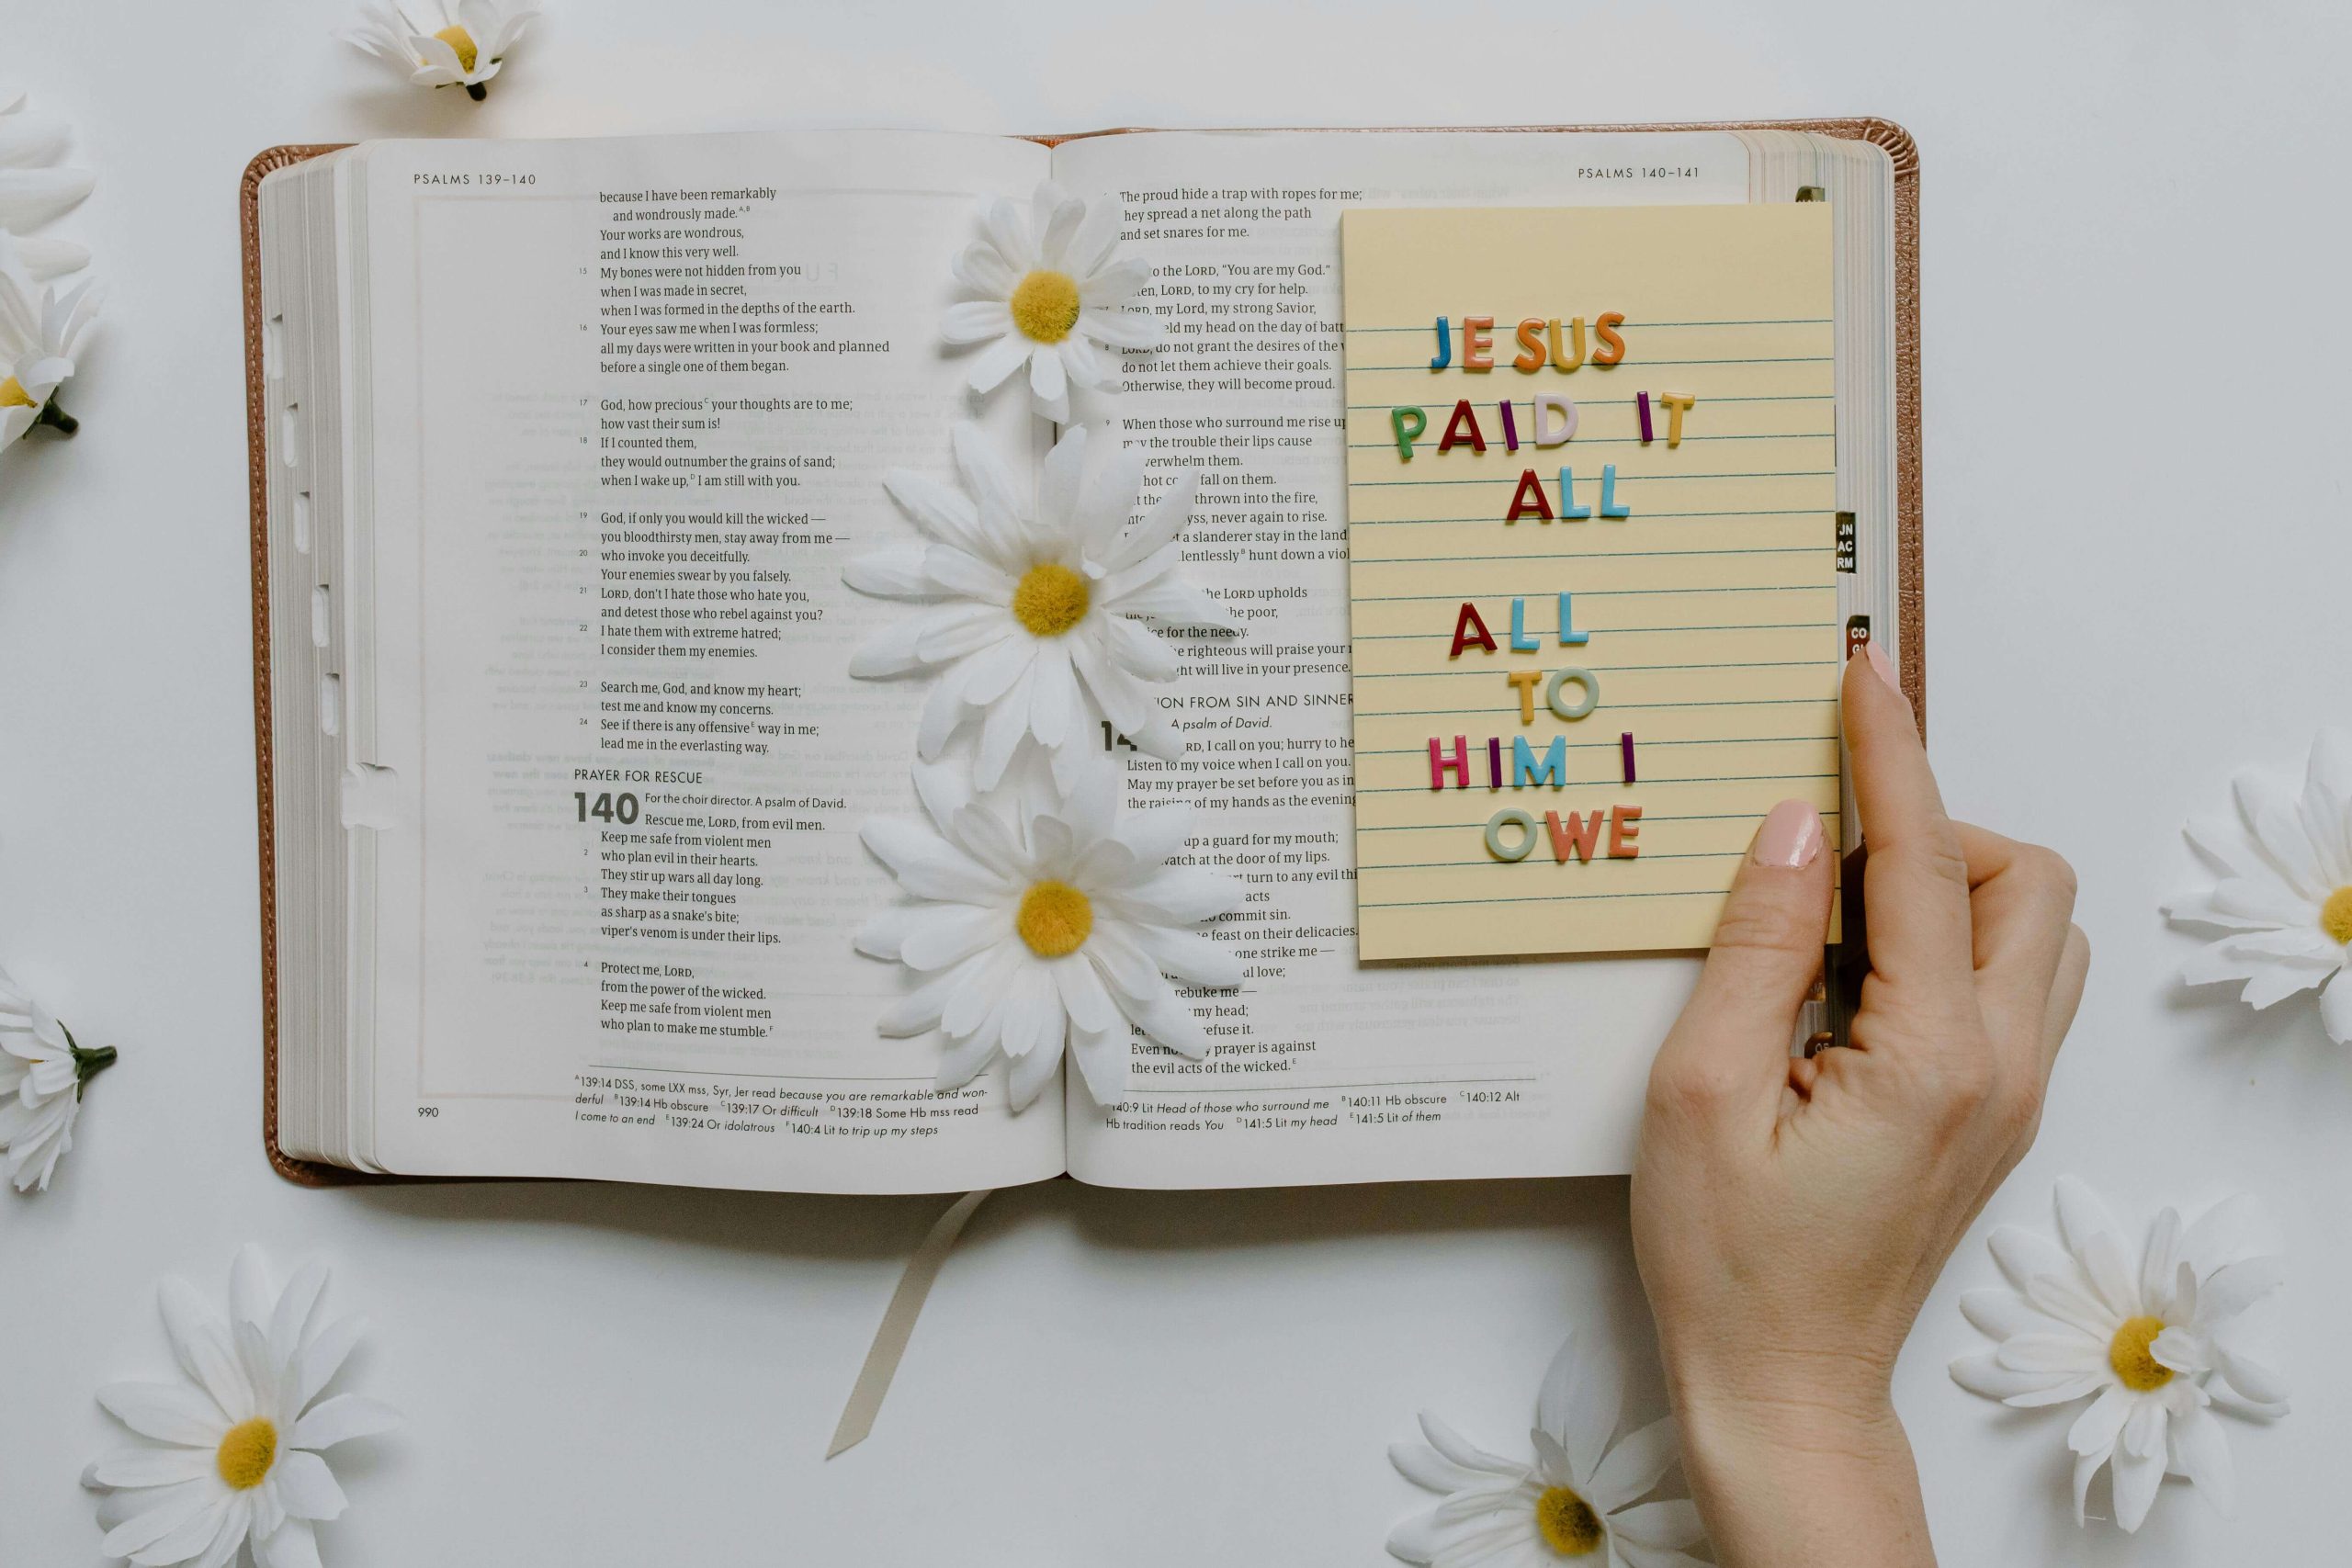 PSALMS 139–140
because I have been remarkably
and wondrously made.ᴬ,ᴮ
Your works are wondrous,
and I know this very well.
15 My bones were not hidden from you
when I was made in secret,
when I was formed in the depths of the earth.
16 Your eyes saw me when I was formless;
all my days were written in your book and planned
before a single one of them began.
17 God, how preciousᶜ your thoughts are to me;
how vast their sum is!
18 If I counted them,
they would outnumber the grains of sand;
when I wake up,ᴰ I am still with you.
19 God, if only you would kill the wicked —
you bloodthirsty men, stay away from me —
20 who invoke you deceitfully.
Your enemies swear by you falsely.
21 LORD, don't I hate those who hate you,
and detest those who rebel against you?
22 I hate them with extreme hatred;
I consider them my enemies.
23 Search me, God, and know my heart;
test me and know my concerns.
24 See if there is any offensiveᴱ way in me;
lead me in the everlasting way.
PRAYER FOR RESCUE
140 For the choir director. A psalm of David.
Rescue me, LORD, from evil men.
Keep me safe from violent men
2 who plan evil in their hearts.
They stir up wars all day long.
3 They make their tongues
as sharp as a snake's bite;
viper's venom is under their lips.
4 Protect me, LORD,
from the power of the wicked.
Keep me safe from violent men
who plan to make me stumble.ꟳ
ᴬ139:14 DSS, some LXX mss, Syr, Jer read because you are remarkable and won-
derful ᴮ139:14 Hb obscure ᶜ139:17 Or difficult ᴰ139:18 Some Hb mss read
I come to an end ᴱ139:24 Or idolatrous ꟳ140:4 Lit to trip up my steps
990
PSALMS 140–141
The proud hide a trap with ropes for me;
hey spread a net along the path
and set snares for me.
to the LORD, "You are my God."
LORD, to my cry for help.
LORD, my Lord, my strong Savior,
my head on the day of
8 LORD, do not grant the desires of the
do not let them achieve their goals.
Otherwise, they will become proud.
9 When those who surround me rise
may the trouble their lips cause
overwhelm them.
hot fall on them.
thrown into the fire,
never again to rise.
a slanderer stay in the land
hunt down a
the LORD upholds
the poor,
for the needy.
righteous will praise your
will live in your presence.
FROM SIN AND
A psalm of David.
I call on you; hurry to
Listen to my voice when I call on you.
May my prayer be set before you as
the raising of my hands as the evening
up a guard for my mouth;
at the door of my lips.
turn to any evil
acts
commit sin.
feast on their delicacies.
one strike me —
love;
rebuke me —
my head;
refuse it.
Even prayer is against
the evil acts of the wicked.ᴱ
140:9 Lit Head of those who surround me ᴮ140:11 Hb obscure ᶜ140:12 Alt
Hb tradition reads You ᴰ141:5 Lit my head ᴱ141:5 Lit of them
JESUS
PAID IT
ALL
ALL
TO
HIM I
OWE
JN
AC
RM
CO